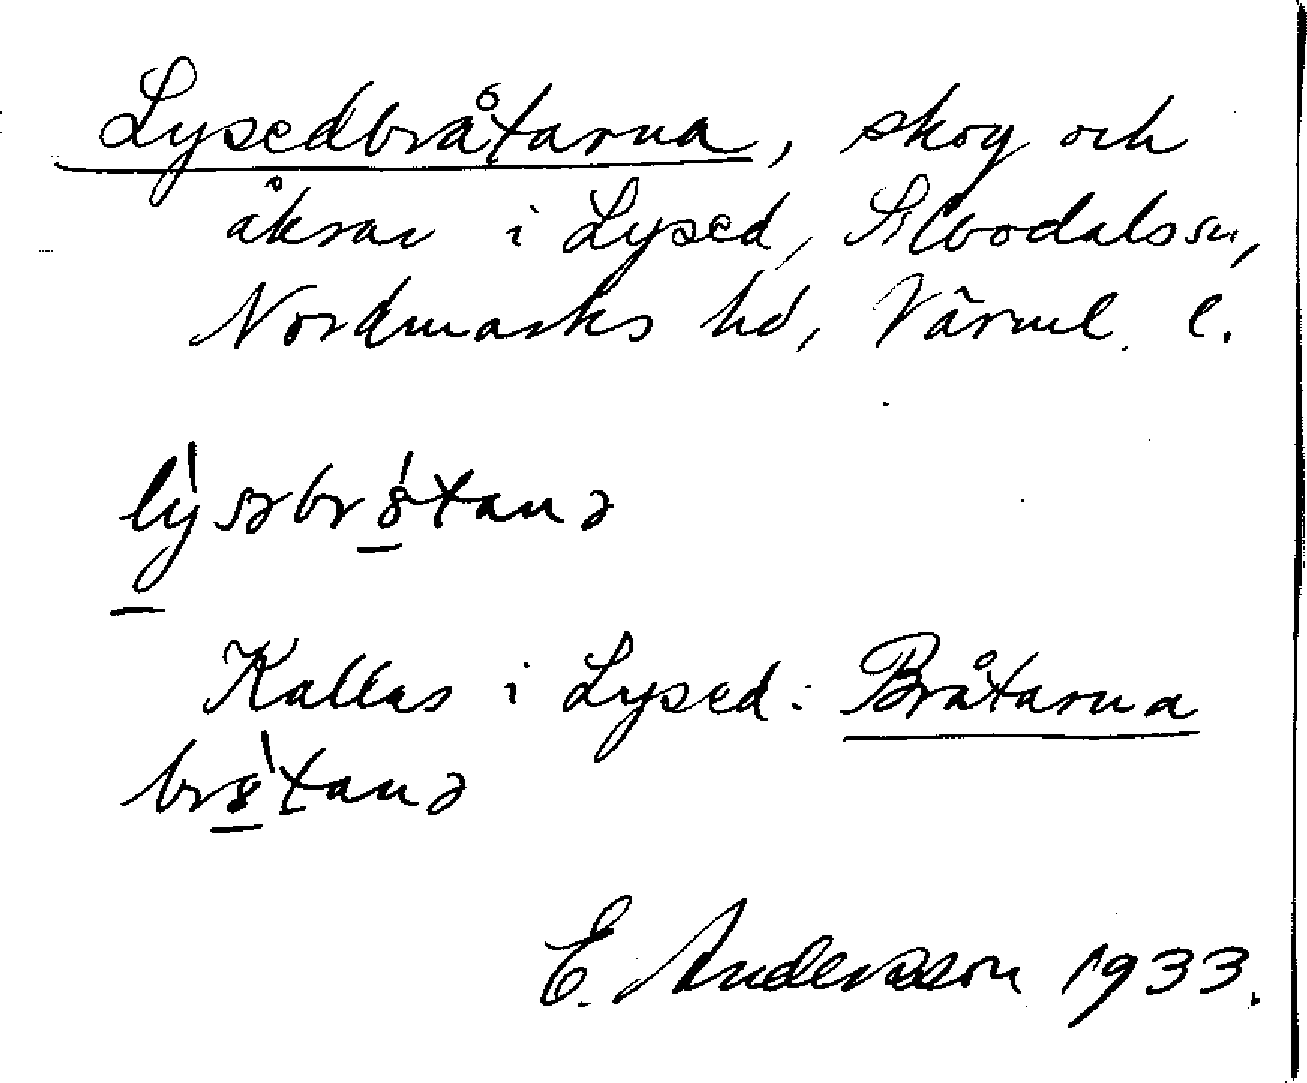 Lysedbråtarna, skog och
åkrar i Lysed, Silbodals sn,
Nordmarks hd, Värml. l.
lýsəbrɷ́tanə
Kallas i Lysed: Bråtarna
brɷ́tanə
E. Andersson 1933.